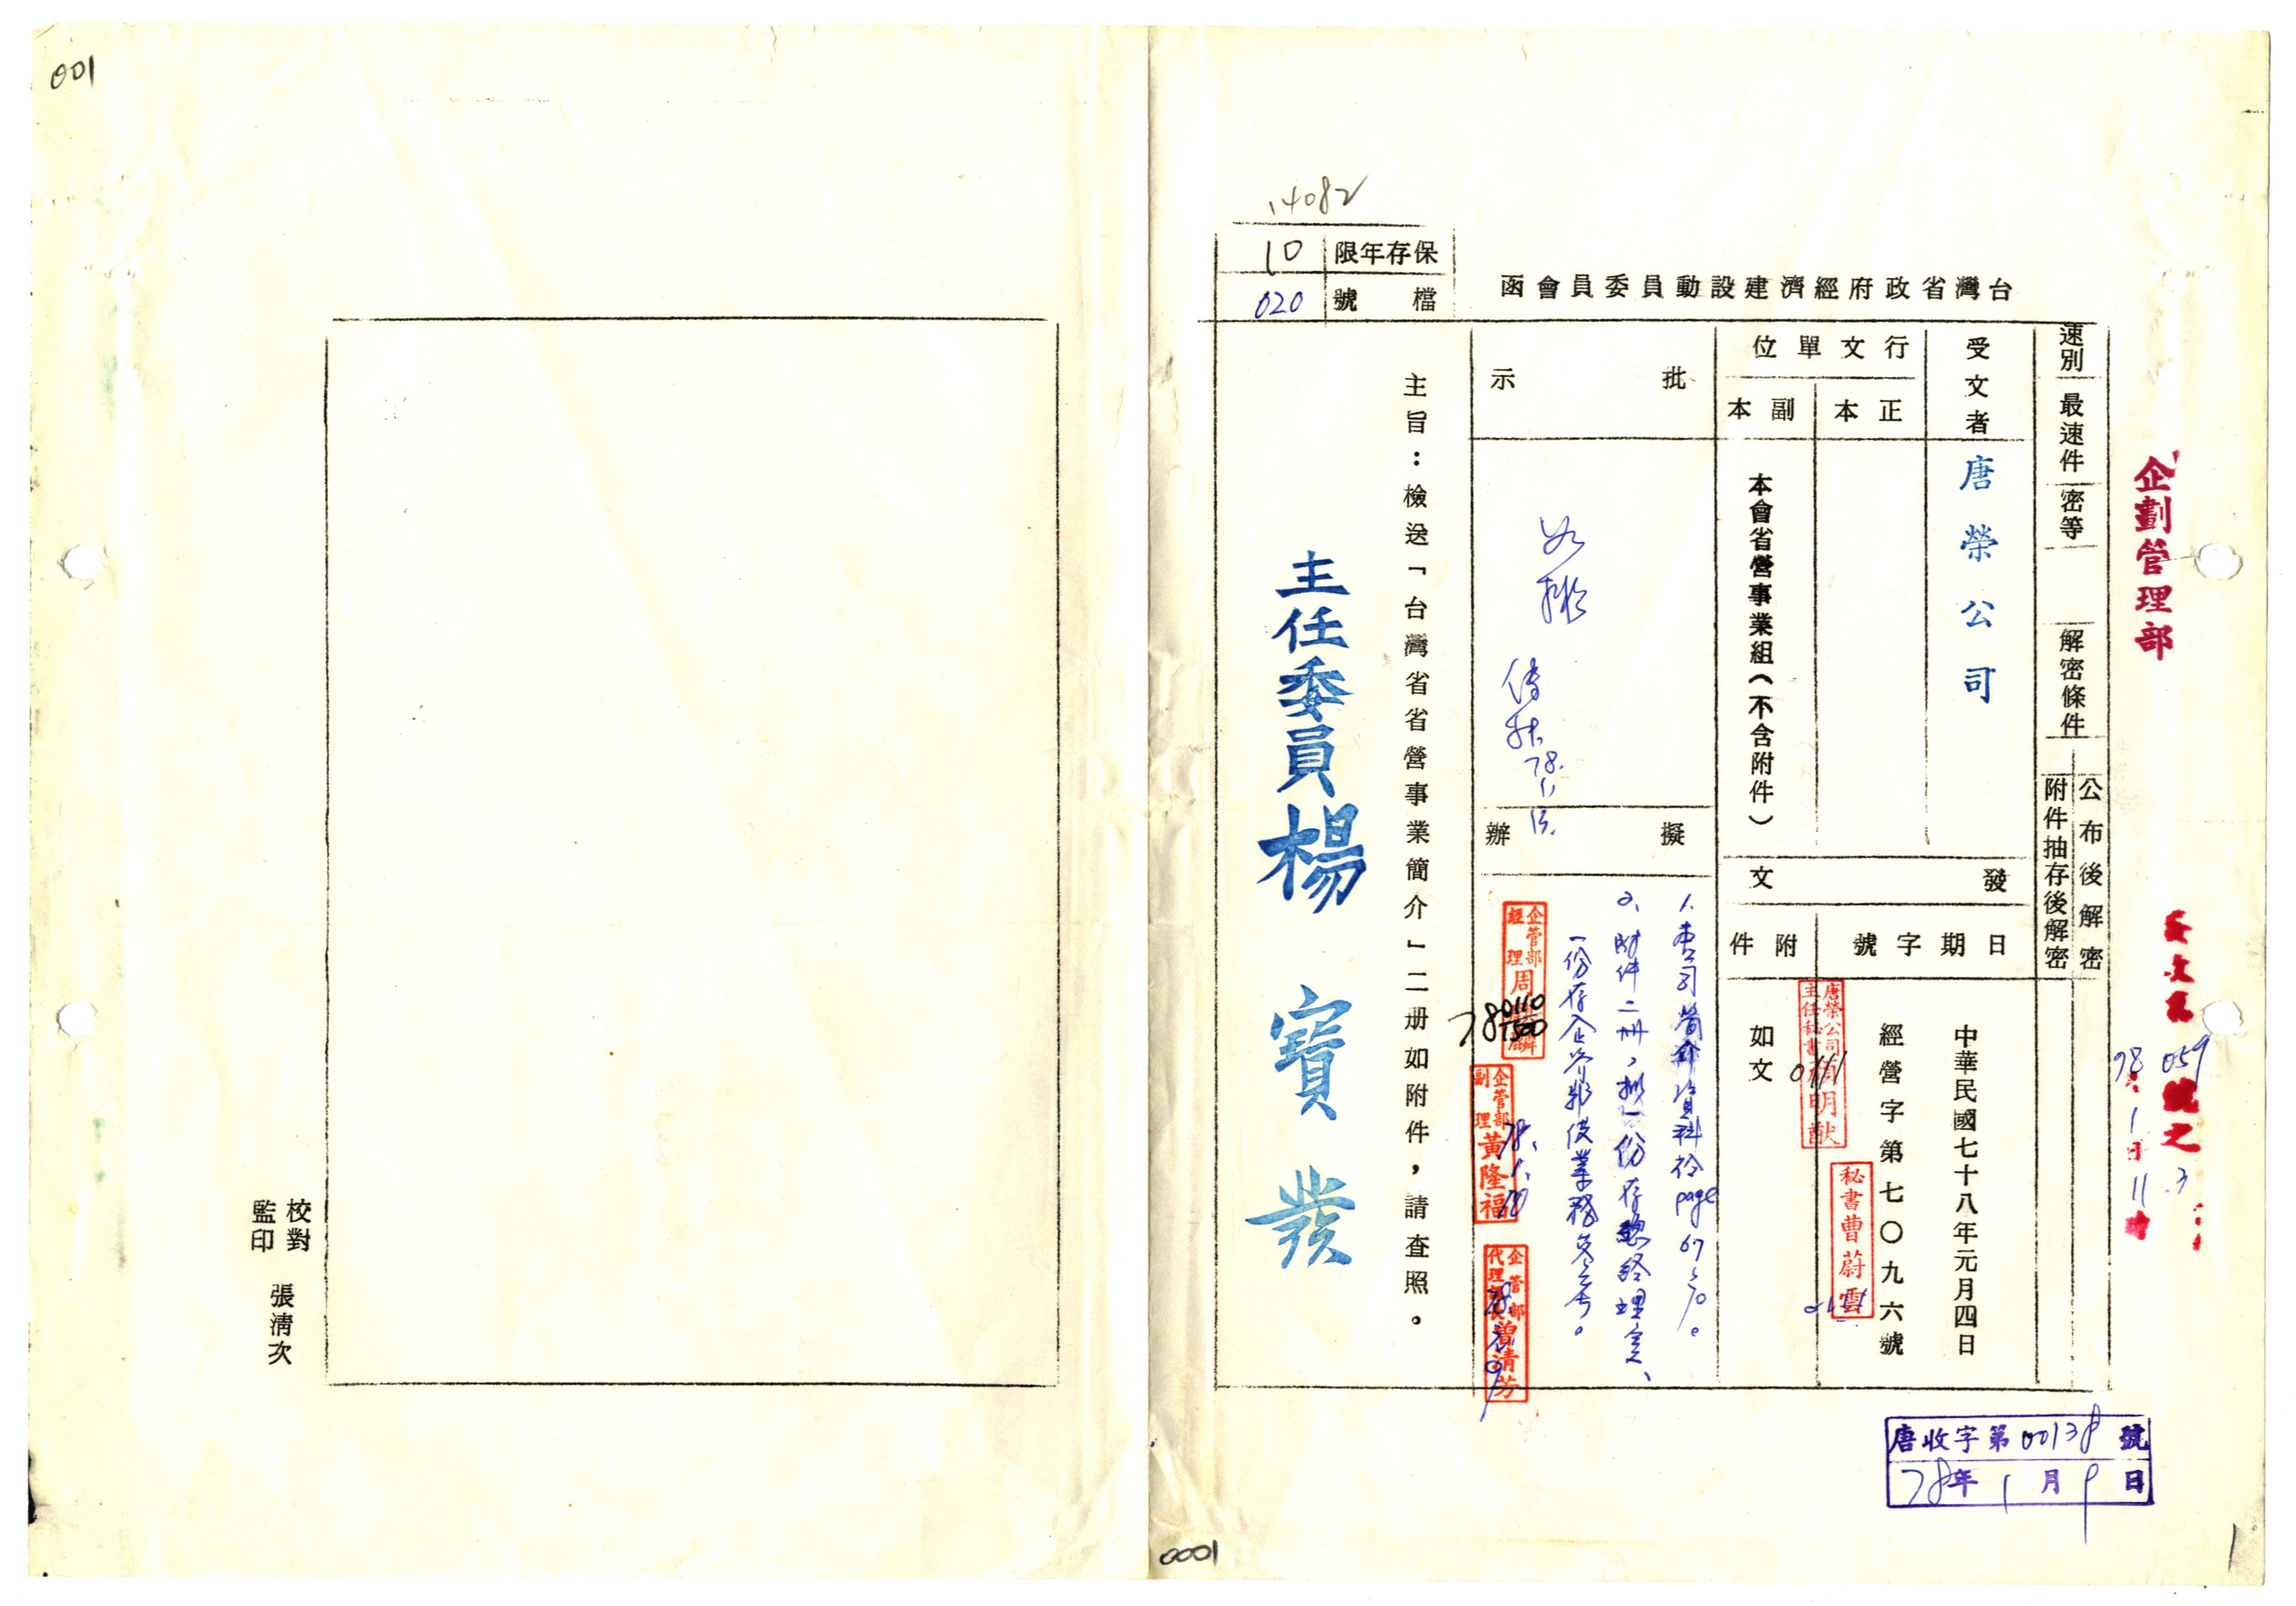 001
14082
保存年限 10
檔號 020
台灣省政府經濟建設動員委員會函
企劃管理部
速別
最速件
密等
解密條件
公布後解密
附件抽存後解密
受文者
唐榮公司
行文單位
正本
副本
本會省營事業組(不含附件)
發文
日期字號
中華民國七十八年元月四日
經營字第七〇九六號
附件
如文
唐榮公司
主任秘書
0111
秘書曹蔚雲
批示
如擬
78.1.13.
擬辦
1.本公司簡介資料於page 67~70。
2.附件二冊,擬一份存總經理室、
一份存入企管部供業務參考。
企管部
經理 周
780110
1500
企管部
副理 黃隆福
78.1.10
企管部
曾清芳
主旨:檢送「台灣省省營事業簡介」二册如附件,請查照。
主任委員楊寶發
059
78
1
11
3
唐收字第00138號
78年1月9日
校對
監印
張淸次
0001
1